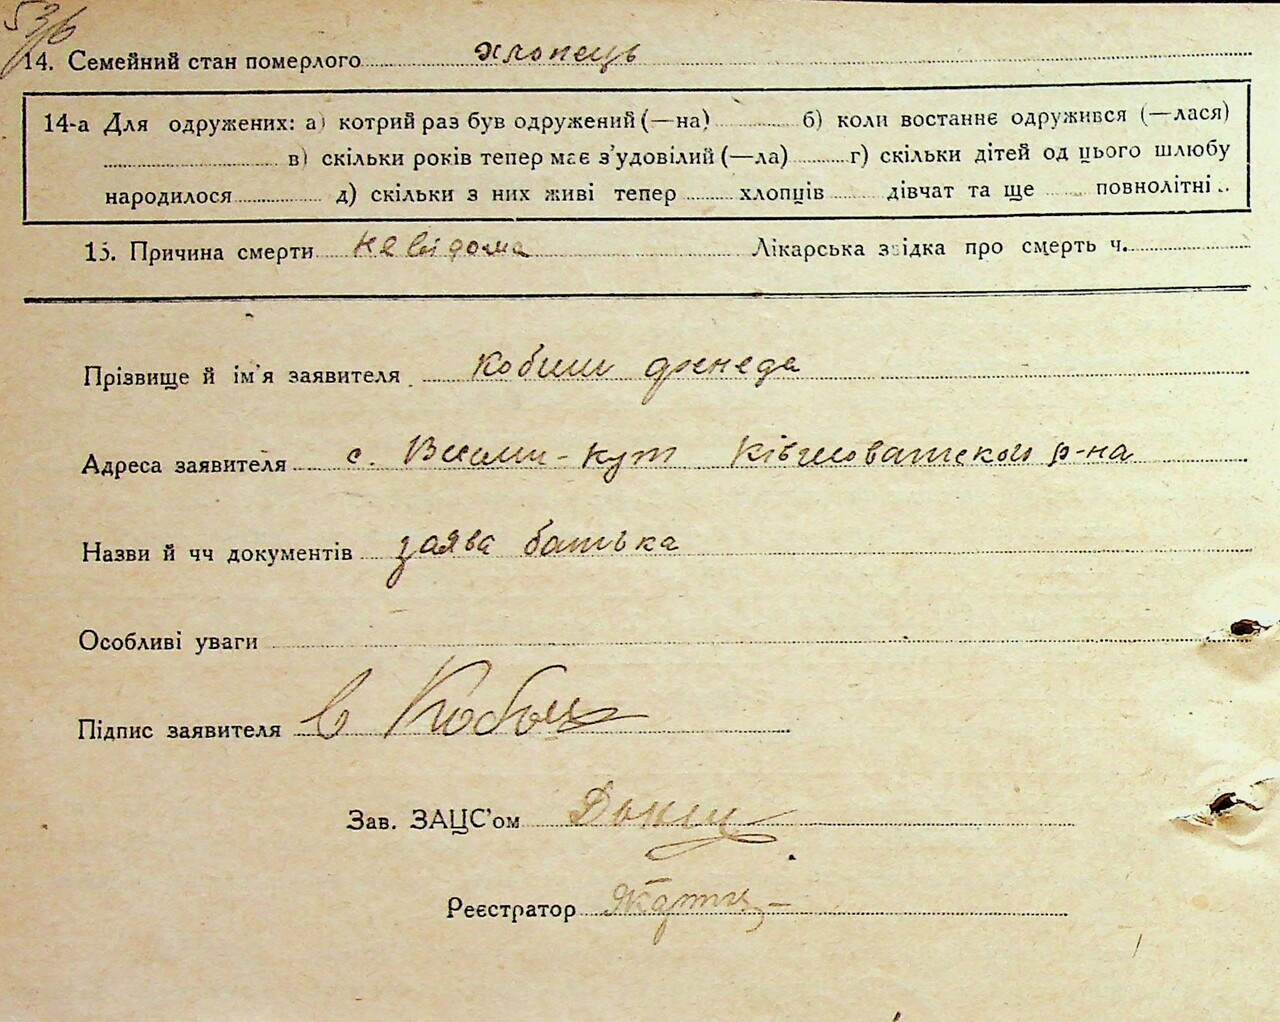 536
14. Семейний стан померлого хлопець
14-а Для одружених: а) котрий раз був одружений (—на) б) коли востаннє одружився (—лася)
в) скільки років тепер має з'удовілий (—ла) г) скільки дітей од цього шлюбу
народилося д) скільки з них живі тепер хлопців дівчат та ще повнолітні
15. Причина смерти невідома Лікарська звідка про смерть ч.
Прізвище й ім'я заявителя Кобиш
Адреса заявителя с. р-на
Назви й чч документів заява батька
Особливі уваги
Підпис заявителя
Зав. ЗАЦС'ом
Реєстратор